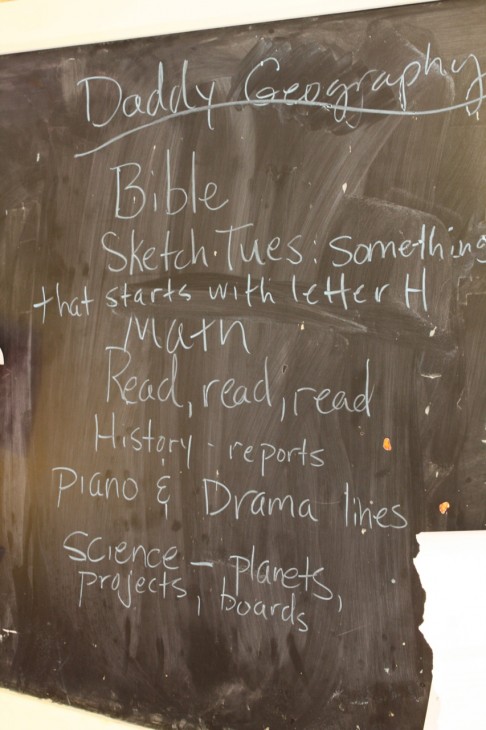 Daddy Geography
Bible
Sketch·Tues: Something
that starts with letter H
Math
Read, read, read
History - reports
Piano & Drama lines
Science - planets,
projects, boards